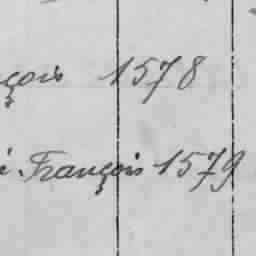 çois 1578
é. François 1579